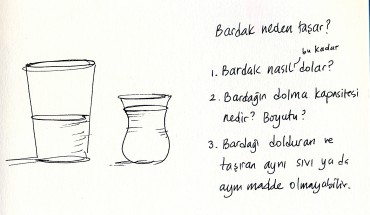 Bardak neden taşar?
bu kadar
1. Bardak nasıl dolar?
2. Bardağın dolma kapasitesi
nedir? Boyutu?
3. Bardağı dolduran ve
taşıran aynı sıvı ya da
aynı madde olmayabilir.